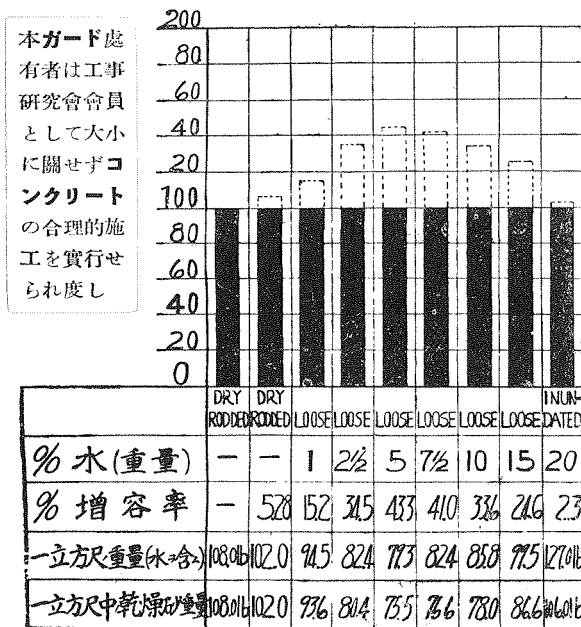 本ガード處
有者は工事
研究會會員
として大小
に關せずコ
ンクリート
の合理的施
工を實行せ
られ度し
200
80
60
40
20
100
80
60
40
20
0
DRY RODDED DRY RODDED LOOSE LOOSE LOOSE LOOSE LOOSE LOOSE INUN-DATED
% 水(重量) — — 1 2½ 5 7½ 10 15 20
% 增容率 — 5.28 15.2 34.5 43.3 41.0 33.6 24.6 2.3
一立方尺重量(水ヲ含ム) 108.0lb 102.0 94.5 82.4 79.3 82.4 85.8 99.5 127.0lb
一立方尺中乾燥砂重量 108.0lb 102.0 93.6 80.4 75.5 76.6 78.0 86.6 106.0lb